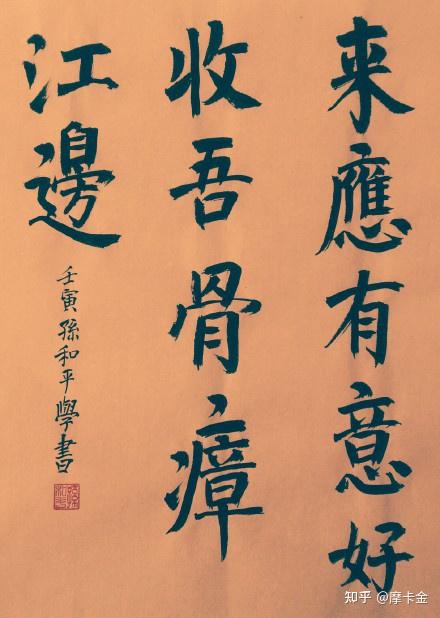 来應有意好
收吾骨瘴
江邊
壬寅孫和平學書
知乎 @摩卡金